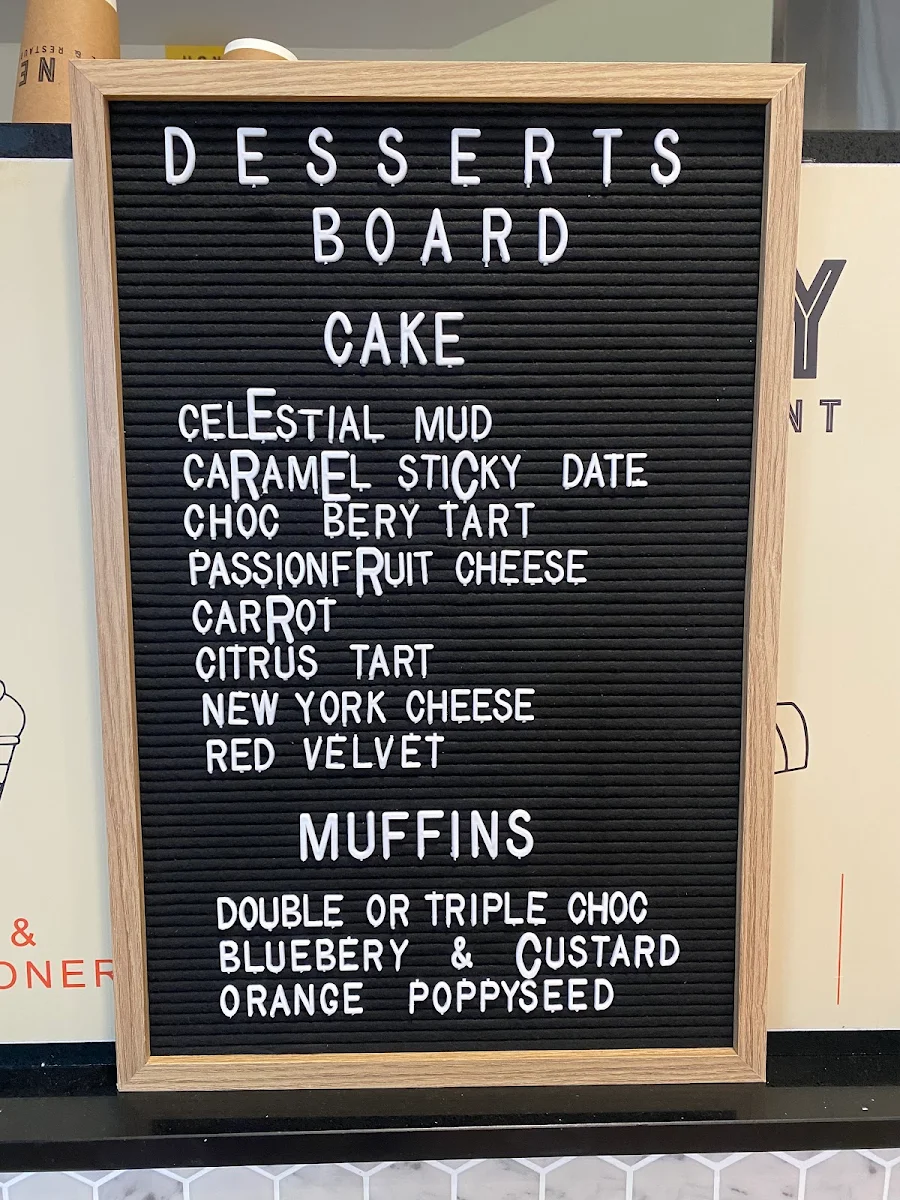 DESSERTS
BOARD
CAKE
CELESTIAL MUD
CARAMEL STICKY DATE
CHOC BERY TART
PASSIONFRUIT CHEESE
CARROT
CITRUS TART
NEW YORK CHEESE
RED VELVET
MUFFINS
DOUBLE OR TRIPLE CHOC
BLUEBERY & CUSTARD
ORANGE POPPYSEED
Y
NT
&
ONER